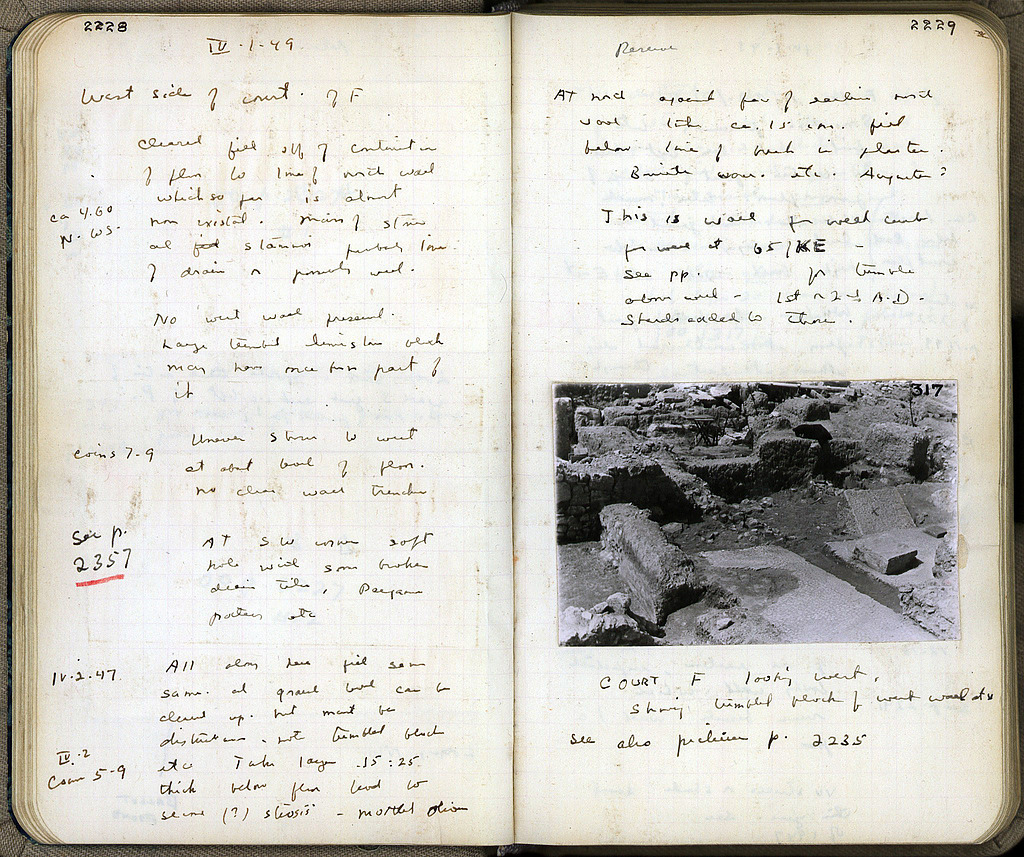 2228
IV.1.49
West side of court. of F
cleared fill off of continuation
of floor to line of north wall
ca 4.60
N. WS.
which so far is almost
non existent. mass of stones
at stairs probably line
of drain or possibly wall.
No west wall present.
Large tumbled limestone block
may have once been part of
it
Coins 7-9
Uneven stones to west
at about level of floor.
no clear wall trenches
See p.
2357
AT SW corner soft
hole with some broken
drain tiles, Pergamene
pottery etc
IV.2.47
All along here fill seems
same. at ground level can be
cleaned up. but must be
disturbance. note tumbled block
IV.2
Coins 5-9
etc Take layer .15:25
thick below floor level to
secure (?) - mostly
2229
Reserve
AT north against face of earlier north
wall ca. 15 cm. fill
below line of break in plaster.
ware. etc. Augustan?
This is wall for west
for wall at 65/KE -
See pp. for tumble
above wall - 1st or 2nd A.D.
Sherds added to those.
317
COURT F looking west,
Showing tumbled block of west wall etc
See also picture p. 2235